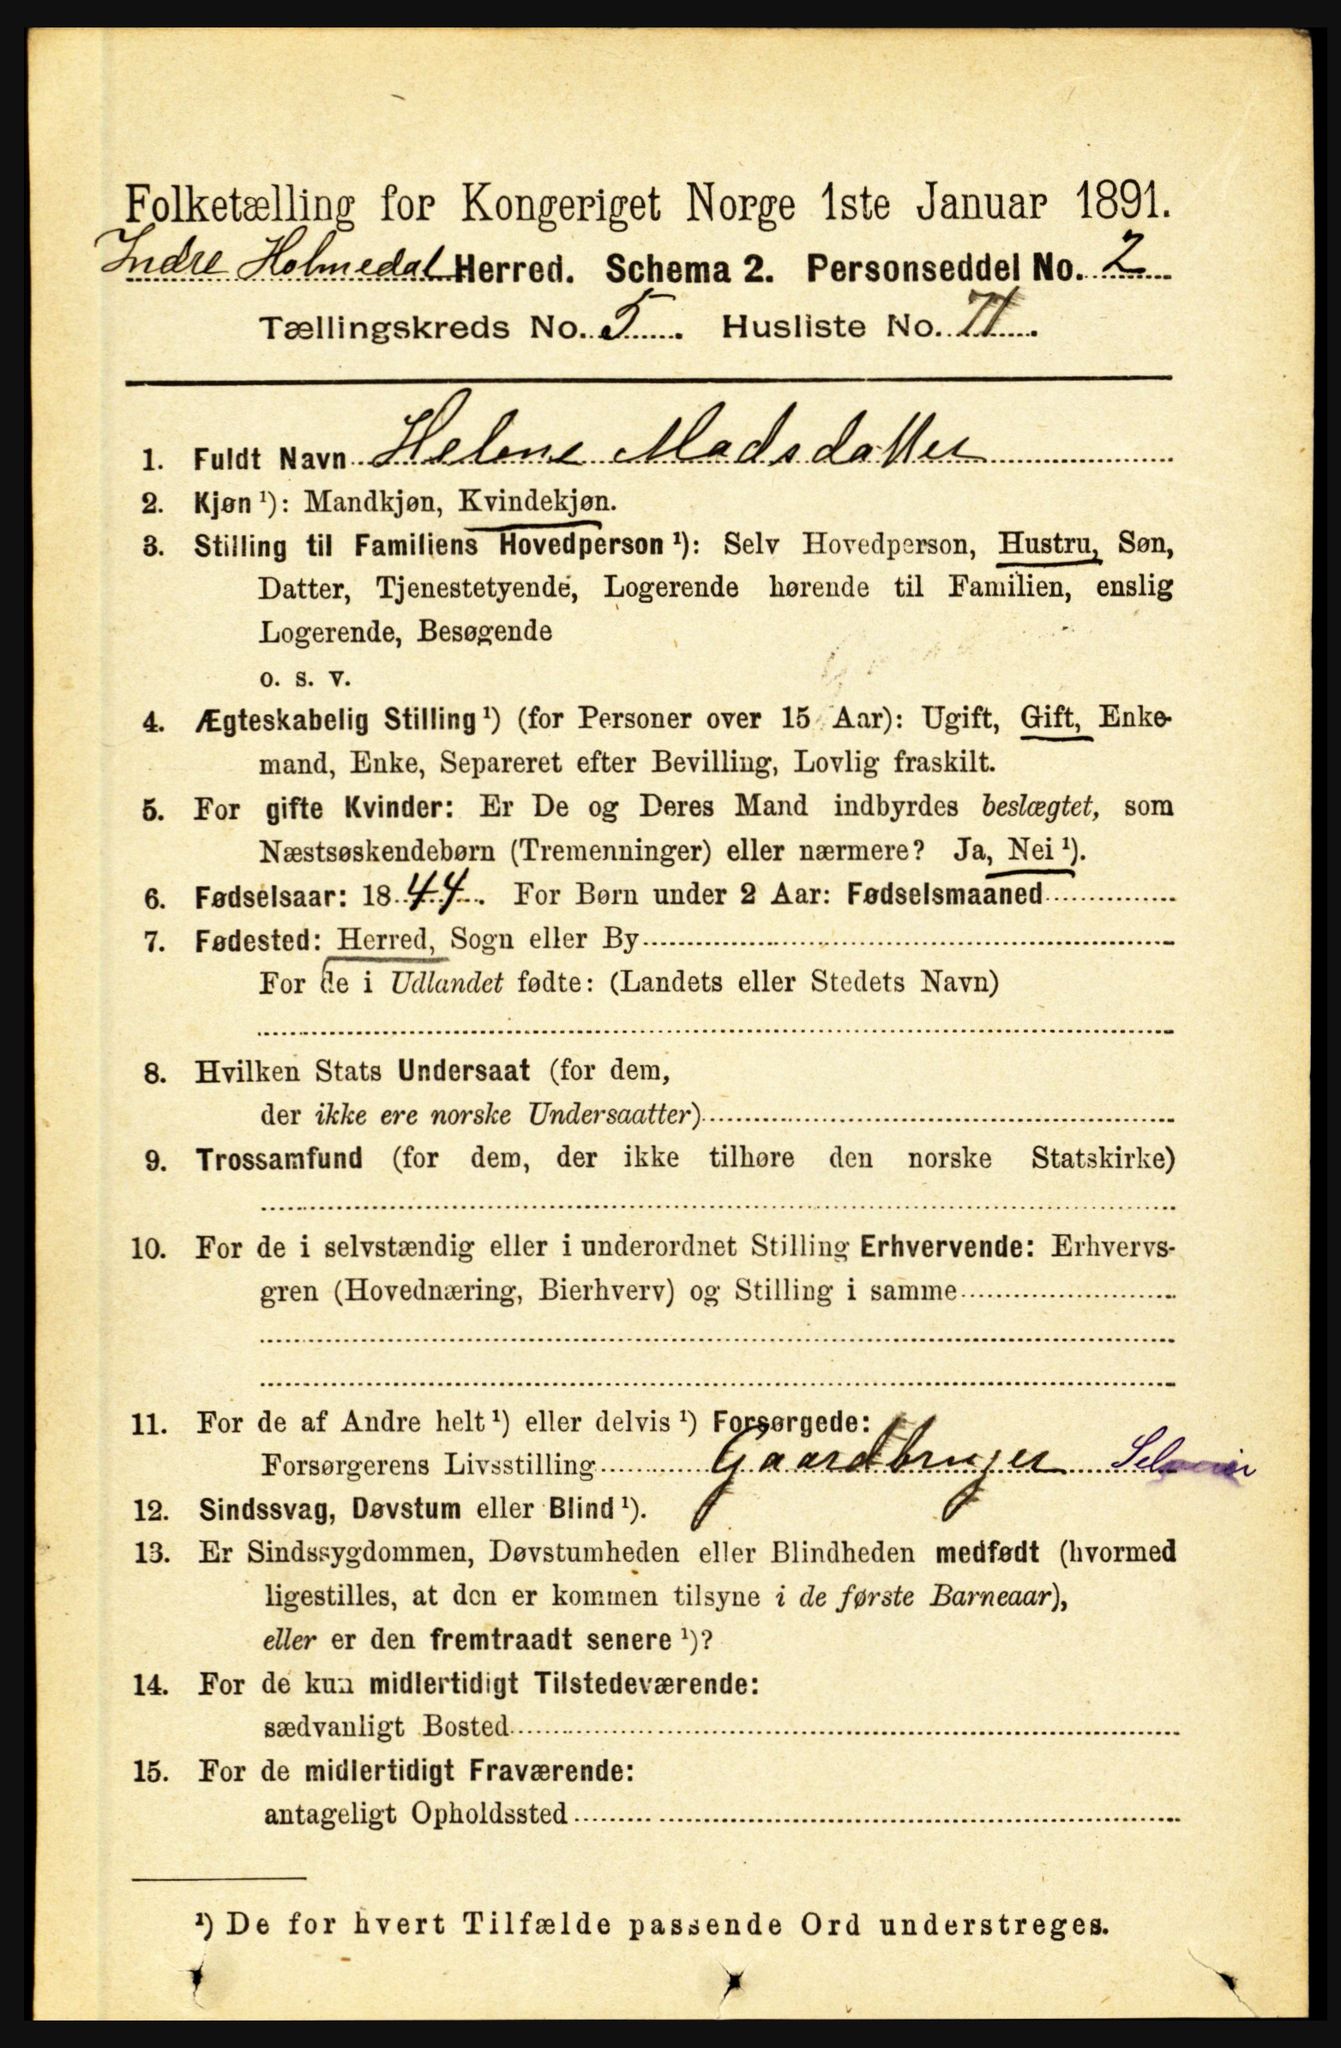 Folketælling for Kongeriget Norge 1ste Januar 1891.
Indre Holmedal Herred. Schema 2. Personseddel No. 2
Tællingskreds No. 5. Husliste No. 71.
1. Fuldt Navn Helene Madsdatter
2. Kjøn ¹): Mandkjøn, Kvindekjøn.
3. Stilling til Familiens Hovedperson ¹): Selv Hovedperson, Hustru, Søn,
Datter, Tjenestetyende, Logerende hørende til Familien, enslig
Logerende, Besøgende
o. s. v.
4. Ægteskabelig Stilling ¹) (for Personer over 15 Aar): Ugift, Gift, Enke-
mand, Enke, Separeret efter Bevilling, Lovlig fraskilt.
5. For gifte Kvinder: Er De og Deres Mand indbyrdes beslægtet, som
Næstsøskendebørn (Tremenninger) eller nærmere? Ja, Nei ¹).
6. Fødselsaar: 1844. For Børn under 2 Aar: Fødselsmaaned
7. Fødested: Herred, Sogn eller By
For de i Udlandet fødte: (Landets eller Stedets Navn)
8. Hvilken Stats Undersaat (for dem,
der ikke ere norske Undersaatter)
9. Trossamfund (for dem, der ikke tilhøre den norske Statskirke)
10. For de i selvstændig eller i underordnet Stilling Erhvervende: Erhvervs-
gren (Hovednæring, Bierhverv) og Stilling i samme
11. For de af Andre helt ¹) eller delvis ¹) Forsørgede:
Forsørgerens Livsstilling Gaardbruger Seleier
12. Sindssvag, Døvstum eller Blind ¹).
13. Er Sindssygdommen, Døvstumheden eller Blindheden medfødt (hvormed
ligestilles, at den er kommen tilsyne i de første Barneaar),
eller er den fremtraadt senere ¹)?
14. For de kun midlertidigt Tilstedeværende:
sædvanligt Bosted
15. For de midlertidigt Fraværende:
antageligt Opholdssted
¹) De for hvert Tilfælde passende Ord understreges.